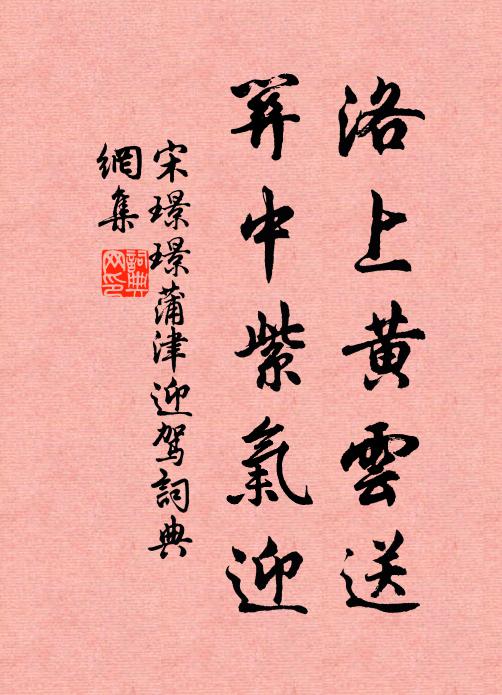 洛上黃雲送
關中紫氣迎
宋璟璟蒲津迎駕詞典
網集
詞典網印